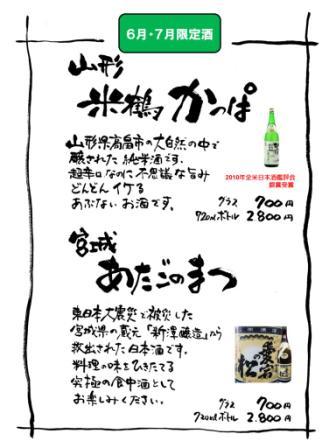 6月・7月限定酒
山形
米鶴 かっぱ
山形県高畠市の大自然の中で
醸された純米酒です。
超辛口なのに不思議な旨み
どんどんイケる
あぶないお酒です。
2010年全米日本酒鑑評会
銀賞受賞
グラス 700円
720mlボトル 2.800円
宮城
あたごのまつ
東日本大震災で被災した
宮城県の蔵元「新澤醸造」から
救出された日本酒です。
料理の味をひきたてる
究極の食中酒として
お楽しみください。
愛宕の松
グラス 700円
720mlボトル 2.800円